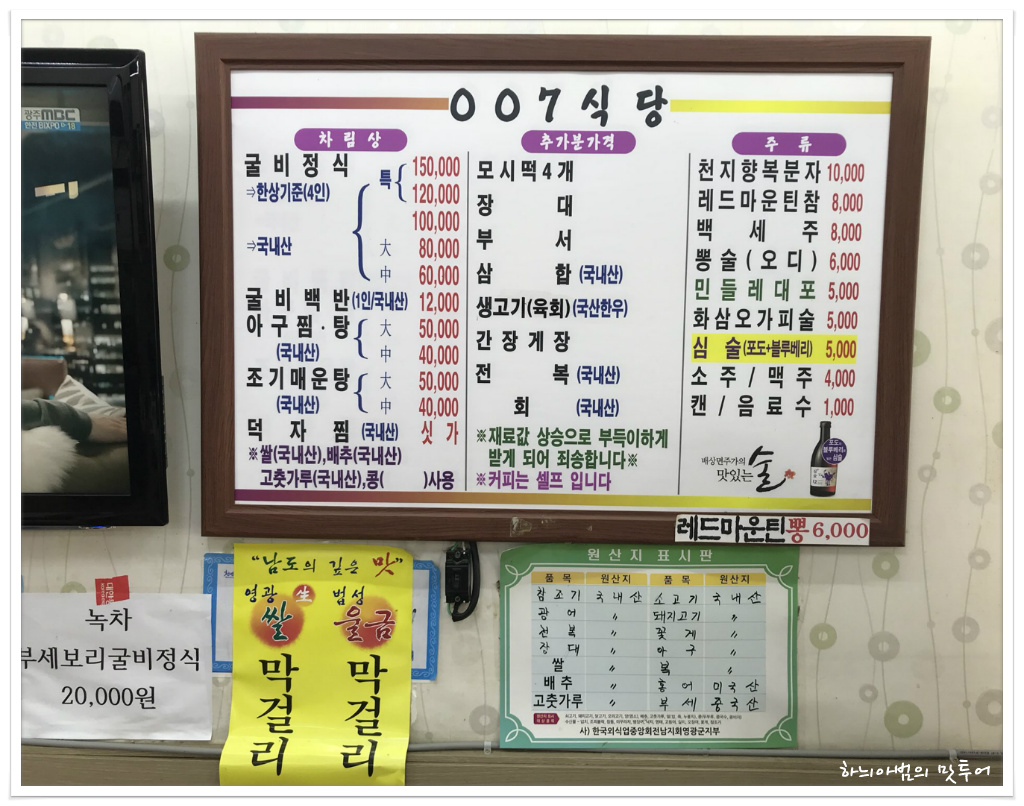 광주MBC
007식당
차림상
굴비정식
⇒한상기준(4인)
⇒국내산
특 150,000
120,000
100,000
大 80,000
中 60,000
굴비백반(1인/국내산) 12,000
아구찜·탕 (국내산)
大 50,000
中 40,000
조기매운탕 (국내산)
大 50,000
中 40,000
덕자찜 (국내산) 싯가
※쌀(국내산),배추(국내산)
고춧가루(국내산),콩( )사용
추가분가격
모시떡4개
장대
부서
삼합 (국내산)
생고기(육회)(국산한우)
간장게장
전복 (국내산)
회 (국내산)
※재료값 상승으로 부득이하게
받게 되어 죄송합니다※
※커피는 셀프 입니다
주류
천지향복분자 10,000
레드마운틴참 8,000
백세주 8,000
뽕술(오디) 6,000
민들레대포 5,000
화삼오가피술 5,000
심술(포도+블루베리) 5,000
소주/맥주 4,000
캔/음료수 1,000
배상면주가의
맛있는 술
레드마운틴뽕 6,000
녹차
부세보리굴비정식
20,000원
"남도의 깊은 맛"
영광 生 법성
쌀 울금
막걸리 막걸리
원산지 표시판
품목 원산지 품목 원산지
참조기 국내산 소고기 국내산
광어 〃 돼지고기 〃
전복 〃 꽃게 〃
장대 〃 아구 〃
쌀 〃 복 〃
배추 〃 홍어 미국산
고춧가루 〃 부세 중국산
사) 한국외식업중앙회전남지회영광군지부
하늬아범의 맛투어